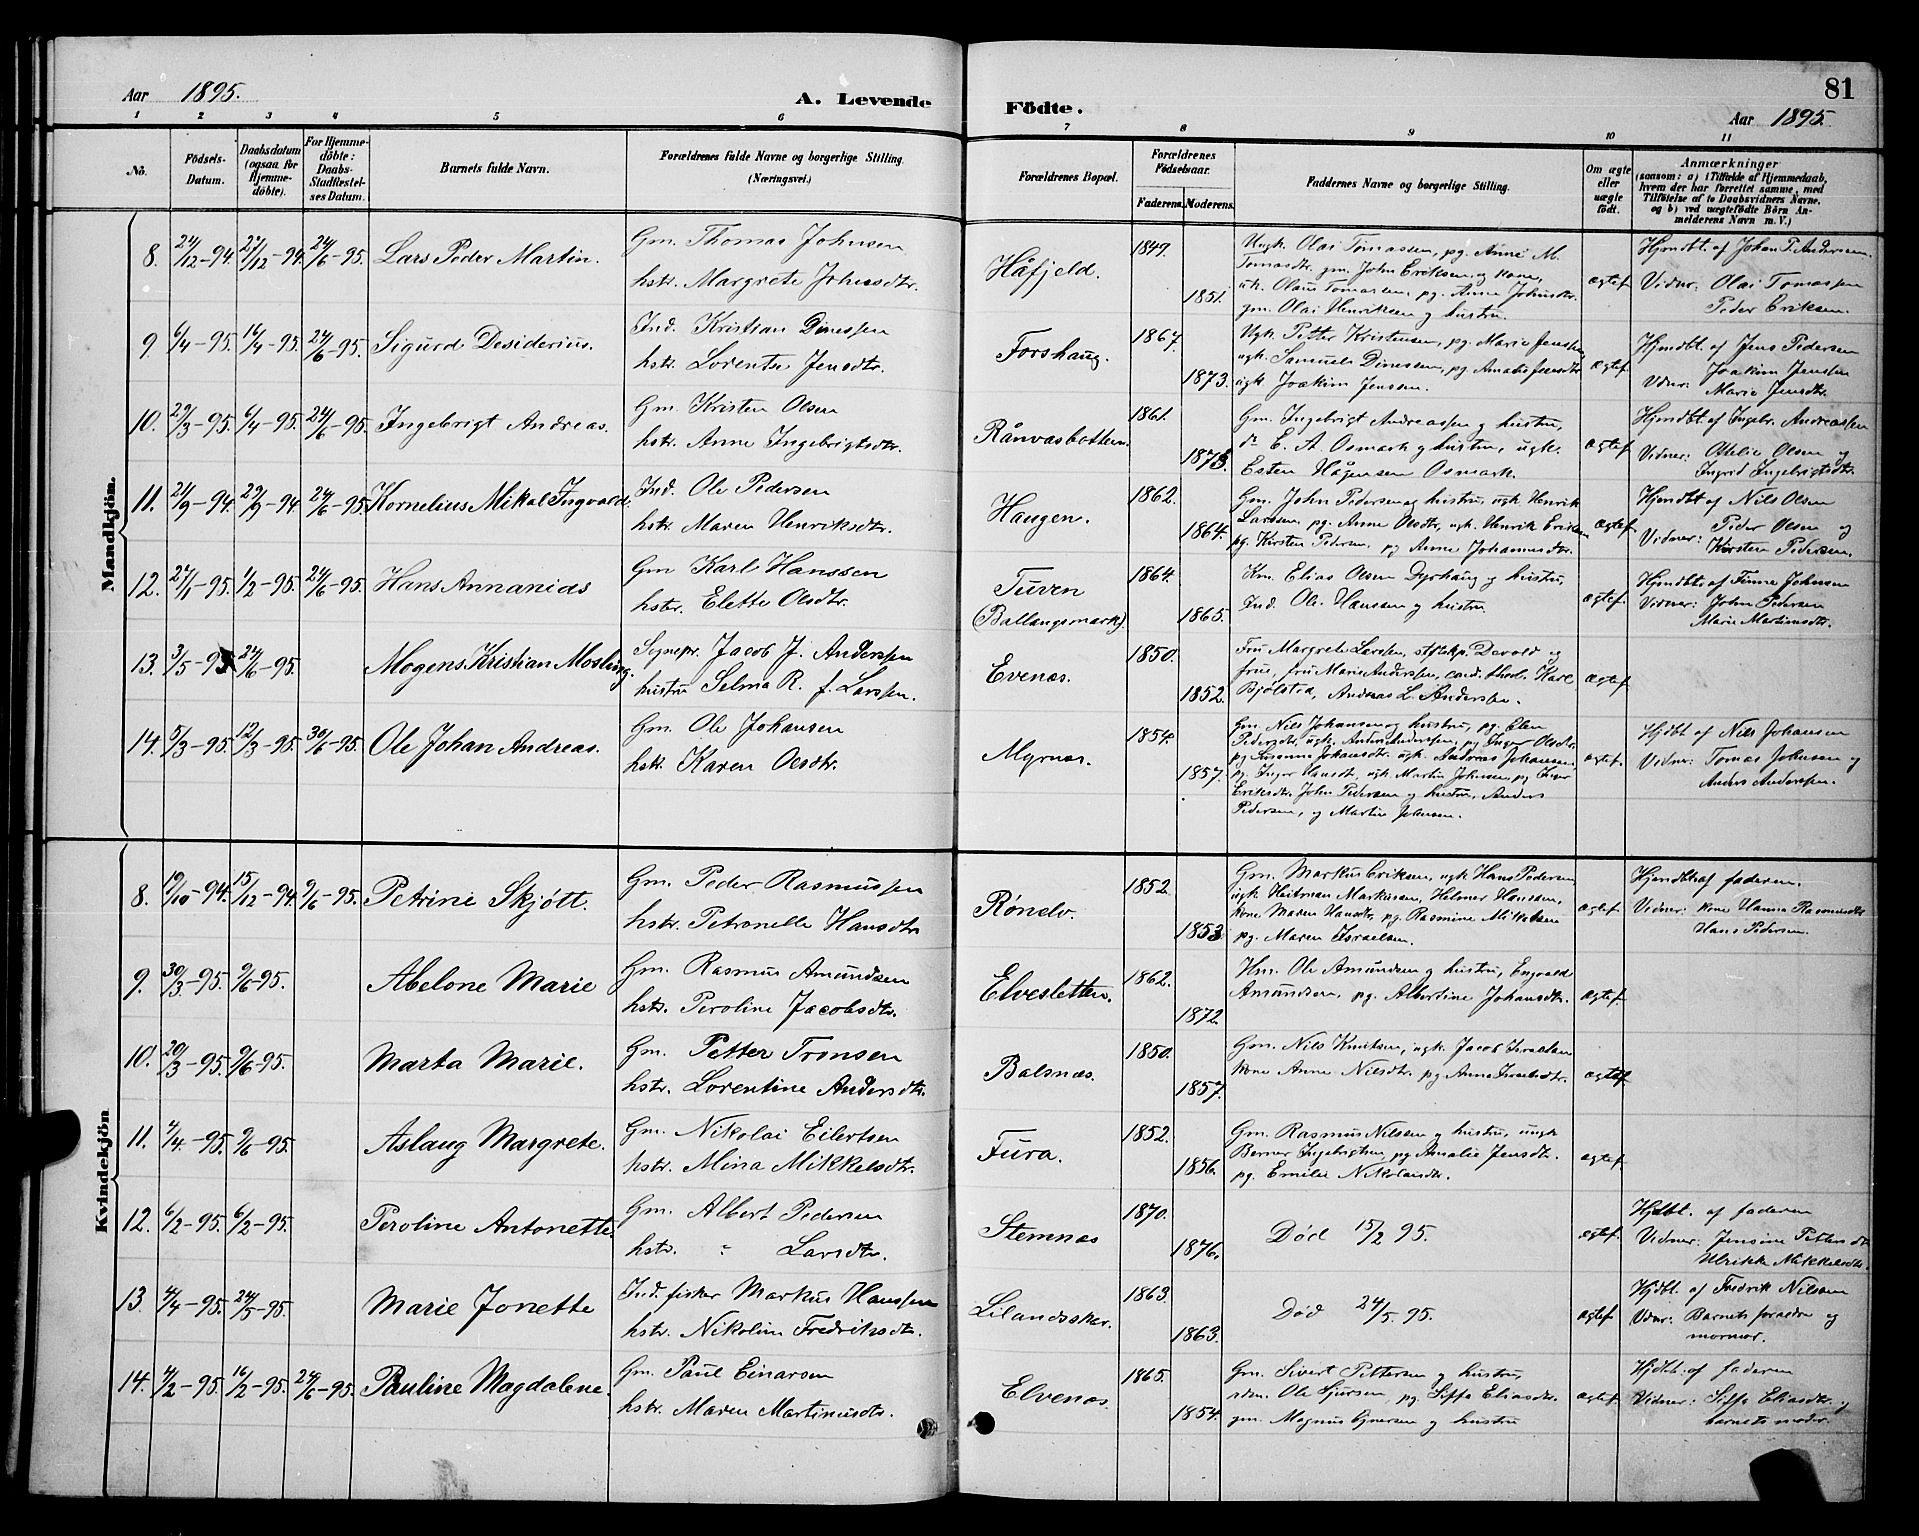 Aar 1895. A. Levende Födte. Aar 1895. 81
1 2 3 4 5 6 7 8 9 10 11
No. Födsels-Datum. Daabsdatum (ogsaa for Hjemme-döbte). For Hjemme-döbte: Daabs-Stadfæstel-ses Datum. Barnets fulde Navn. Forældrenes fulde Navne og borgerlige Stilling. (Næringsvei.) Forældrenes Bopæl. Forældrenes Födselsaar. Faderens. Moderens. Faddernes Navne og borgerlige Stilling. Om ægte eller uægte födt. Anmærkninger (saasom: a) i Tilfælde af Hjemmedaab, hvem der har forrettet samme, med Tilföielse af to Daabsvidners Navne, og b) ved uægtefödte Börn Anmelderens Navn m. V.)
Mandkjön.
8. 24/12-94. 27/12-94. 24/6-95. Lars Peder Martin. Gm. Thomas Johnsen
hstr. Margrete Johnsdtr.
Håfjeld. 1849. 1851.
Ungk. Olai Tomassen, pg. Anne M.
Tomasdtr. gm. John Eriksen og kone,
uk. Olaus Tomassen, pg. Anne Johnsdtr.
gm. Olai Henriksen og hustru.
ægtef.
Hjmdbt. af Johan P. Andersen.
Vidner: Olai Tomassen
Peder Eriksen.
9 6/4-95. 16/4-95. 24/6-95. Sigurd Desiderius. Ind. Kristian Dinessen
hstr. Lorentse Jensdtr.
Forshaug. 1867. 1873.
Ugk. Petter Kristensen, pg. Marie Jensen,
ugk. Samuel Dinessen, pg Amalie Jensdtr
ugk Joakim Jensen.
ægtef.
Hjmdbt. af Jens Pedersen
Vdnr: Joakim Jensen
Marie Jensdtr.
10. 29/3-95. 6/4-95. 24/6-95. Ingebrigt Andreas. Gm. Kristen Olsen
hstr. Anne Ingebrigtsdtr.
Rånvasbotten. 1861. 1873.
Gm. Ingebrigt Andreassen og hustru,
do E. A. Osmark og hustru, ugk.
Esten Hågensen Osmark.
ægtef
Hjmdbt. af Ingebr. Andreassen
Vidner: Olsen og
Ingrid Ingebrigtsdtr.
11. 21/9-94. 29/9-94 24/6-95. Kornelius Mikal Ingvald. Ind. Ole Pedersen
hstr. Maren Henriksdtr.
Haugen. 1862. 1864.
Gm. John Pedersen og hustru, ugk. Henrik
Larssen, pg. Anne Olsdtr, ugk. Henrik Eriksen
pg. Kirsten Pedersen, pg Anne Johannsdtr.
ægtef.
Hjmdbt af Nils Olsen
Vidner: Peder Olsen og
Kirsten Pedersen.
12. 27/1-95. 1/2-95. 24/6-95. Hans Annanias Gm Karl Hanssen
hstr. Elette Olsdtr.
Tuven
(Ballangsmark). 1864. 1865.
Km. Elias Olsen Dyrhaug og hustru,
Ind. Ole Hansen og hustru
ægtef.
Hjmdbt. af Finne Johnsen
Vidner: John Pedersen
Marie Martinusdtr.
13. 3/5-95 24/6-95. Mogens Kristian Mosling. Sognepr. Jacob J. Anderssen
hustru Selma R. f. Larssen.
Evenæs. 1850. 1852.
Fru Margrete Larssen, Devold og
frue, fru Marie Anderssen, cand. theol. Karl
Bjölstra, Andreas L. Anderssen.
ægtef
14. 5/3-95. 12/3-95. 30/6-95. Ole Johan Andreas. Gm. Ole Johansen
hstr. Karen Olsdtr.
Myrnæs. 1854. 1857.
Gm. Nils Johansen og hustru, pg. Elen
Pedersdtr, ugk. Anders Andersen, pg Inger Olsdtr.
pg Susanna Johansdtr. ugk. Andreas Johansen,
pg. Inger Hansdt, ugk. Martin Johnsen, pg Inger
Eriksdtr. John Pedersen og hustru, Anders
Pedersen, og Martin Johansen.
ægtef.
Hjdbt af Nils Johansen
Vidner: Tomas Johnsen og
Anders Anderssen.
Kvindekjön
8. 19/10-94. 15/12-94. 9/6-95. Petrine Skjött. Gm. Peder Rasmussen
hstr. Petronelle Hansdtr
Rønelv. 1852. 1853.
Gm. Markus Eriksen, ugk. Hans Pedersen
ugk Heitman Markussen, Helmer Hansen,
kone Maren Hansdtr, pg. Rasmine Mikkelsen
pg. Maren Israelsen.
ægtef
Hjmdbt af faderen.
Vidner: kone Hanna Rasmusdtr
Hans Pedersen.
9. 30/3-95. 9/6-95. Abelone Marie Gm. Rasmus Amundsen
hstr. Peroline Jacobsdtr.
Elvesletten. 1862. 1872.
Hm. Ole Amundsen og hustru, Engvald
Amundsen, pg. Albertine Johansdtr.
ægtef
10. 20/3-95. 9/6-95. Marta Marie. Gm. Petter Tronsen
hstr. Lorentine Andersdtr.
Balsnæs. 1850. 1857.
Gm. Nils Knutsen, ugk. Jacob Israelsen
kone Anne Nilsdtr. pg Anna Israelsdtr.
ægtef
11. 4/4-95. 9/6-95. Aslaug Margrete. Gm. Nikolai Eilertsen
hstr. Mina Mikkelsdtr.
Fura. 1852. 1856.
Gm. Rasmus Nilsen og hustru, ungk
Berner Ingebrigtsen, pg Amalie Jensdtr.
pg. Emilie Nikolaisdtr.
ægtef
12. 6/2-95. 6/2-95. Peroline Antonette. Gm. Albert Pedersen
hstr. " Larsdtr.
Stemnæs 1870. 1876.
Död 15/2 95.
ægtef.
Hjdbt. af faderen
Vidner: Jensine Pettersdtr
Ulrikke Mikkelsdtr.
13. 4/4-95. 24/5-95. Marie Jonette Ind. fisker Markus Hanssen
hstr. Nikoline Fredriksdtr.
Lilandsskar. 1863. 1863.
Död 24/5 95.
ægtef
Hjdbt. af Fredrik Nilsen
Vdnr: Barnets forældre og
mormor.
14. 4/2-95. 16/2-95. 24/6-95. Pauline Magdalene. Gm. Paul Einarsen
hstr. Maren Martinusdtr.
Elvenæs. 1865. 1854.
Gm. Sivert Pettersen og hustru,
Ole Sjursen, pg. Siffa Eliasdtr.
gm. Magnus og hustru
ægtef
Hjdbt. af faderen
Vidner: Siffa Eliasdtr. og
barnets moder.